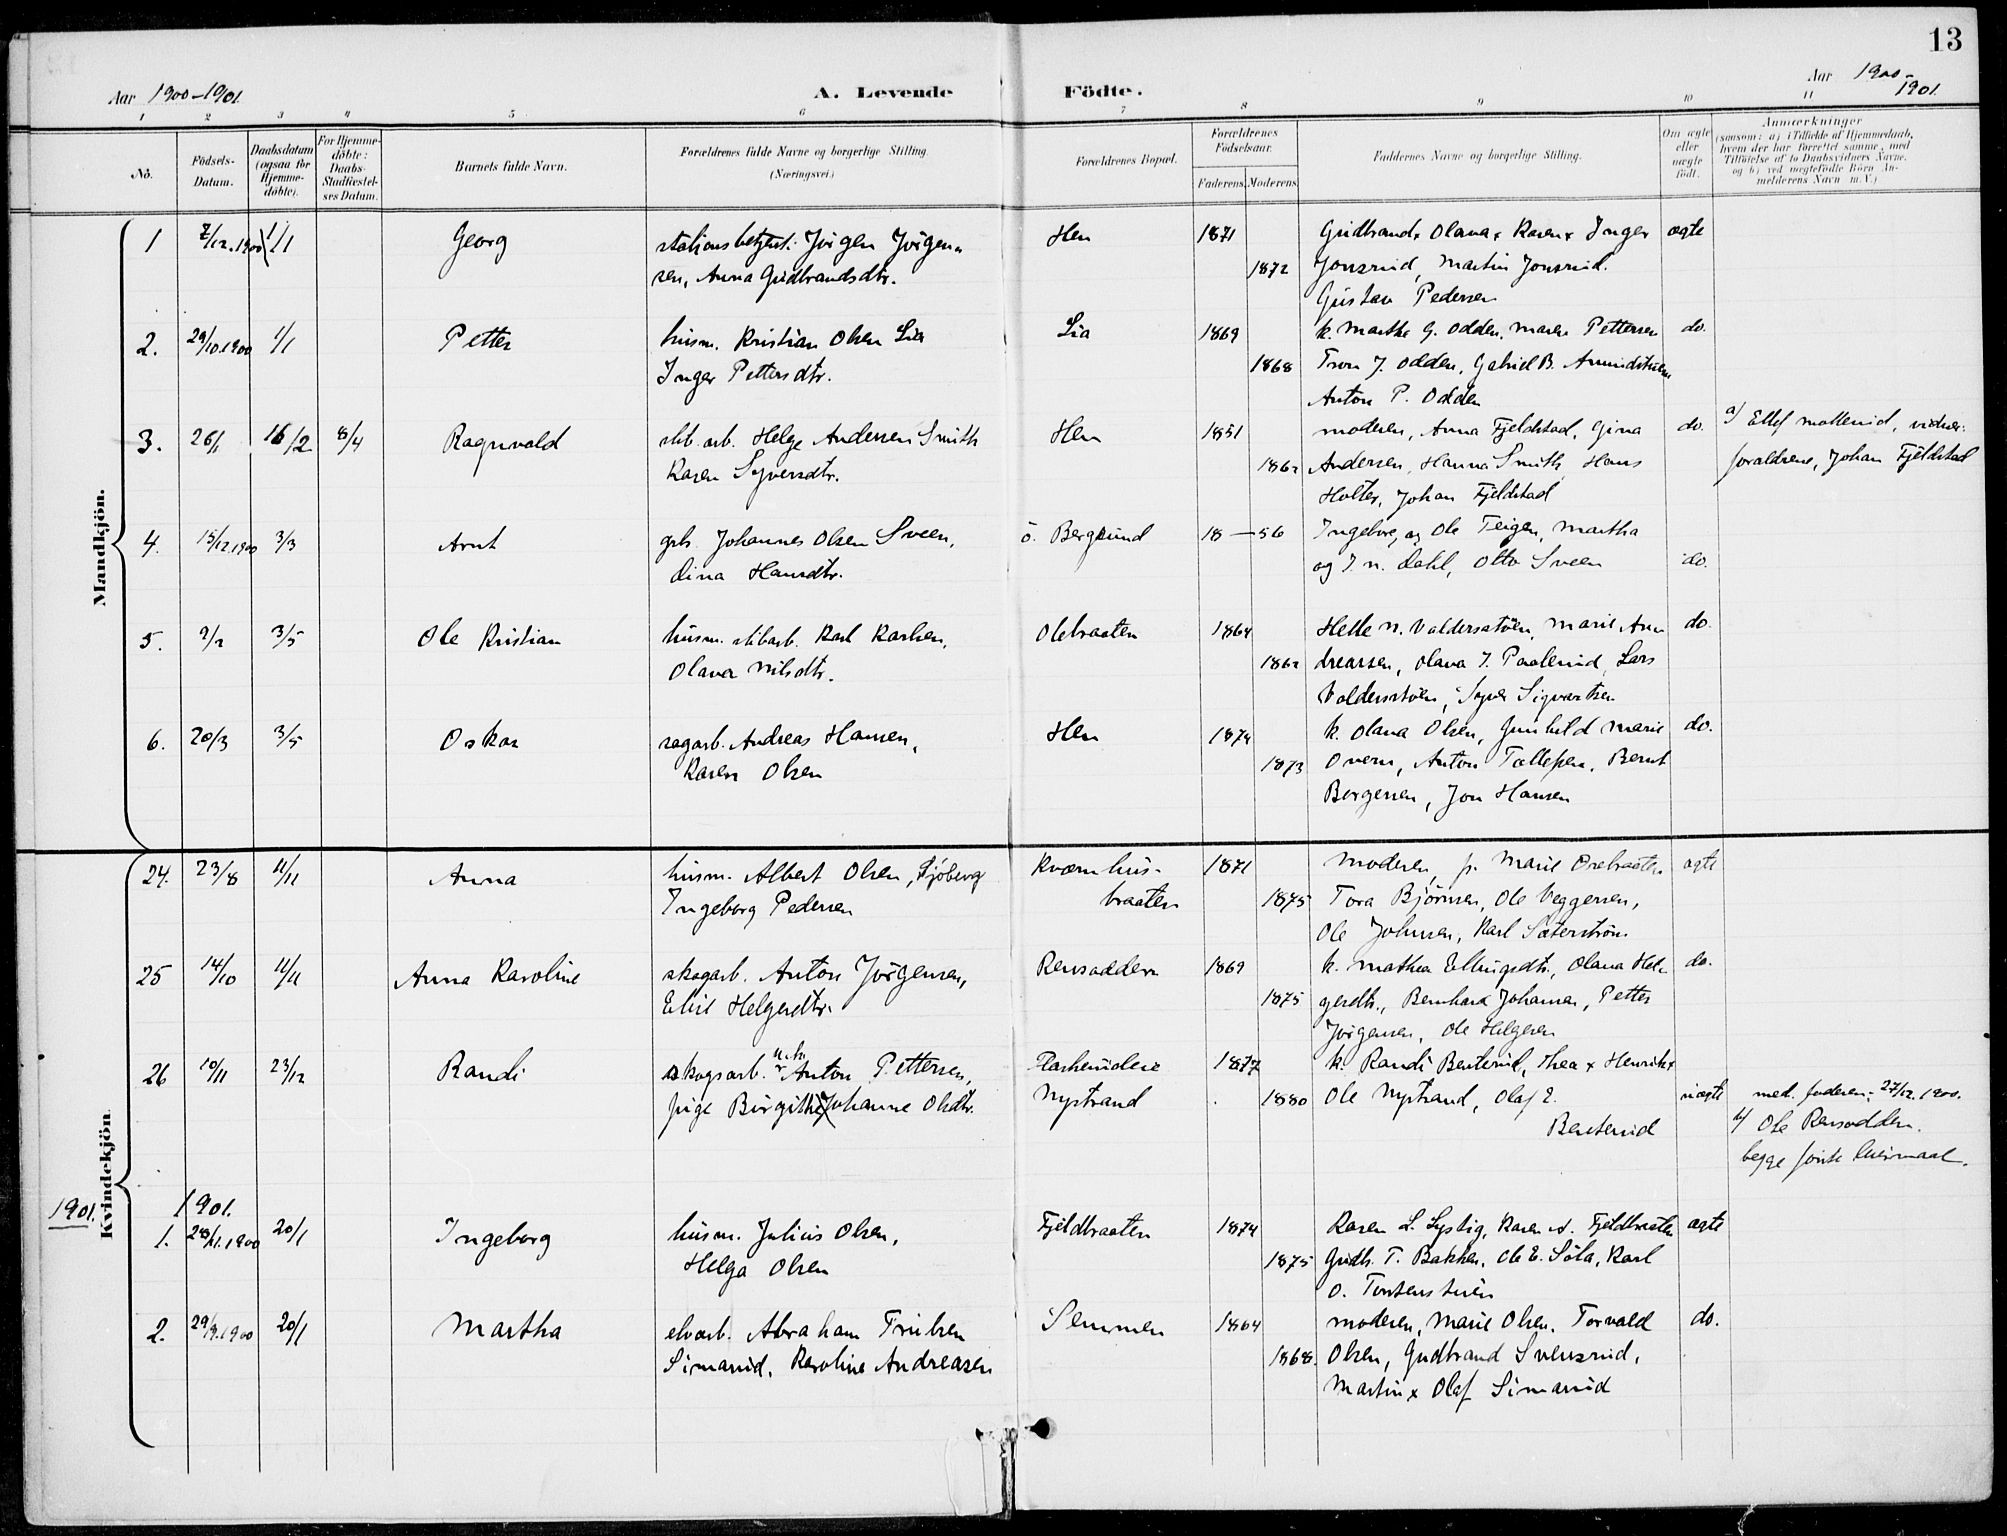 13
Aar 1900-1901.
A. Levende Födte.
Aar 1900-
1901.
1 2 3 4 5 6 7 8 9 10 11
No.
Födsels-
Datum.
Daabsdatum
(ogsaa for
Hjemme-
döbte).
For Hjemme-
döbte:
Daabs-
Stadfæstel-
ses Datum.
Barnets fulde Navn.
Forældrenes fulde Navne og borgerlige Stilling.
(Næringsvei.)
Forældrenes Bopæl.
Forældrenes
Födselsaar.
Faderens. Moderens.
Faddernes Navne og borgerlige Stilling.
Om ægte
eller
uægte
födt.
Anmærkninger
(saasom: a) i Tilfælde af Hjemmedaab,
hvem der har forrettet samme, med
Tilföielse af to Daabsvidners Navne,
og b) ved uægtefödte Börn An-
melderens Navn m. V.)
Mandkjön.
1 7/12.1900 1/1 Georg stationsbetjent. Jörgen Jörgen- Hen 1871 Gudbrand, Olava, Karen, Inger ægte
sen, Anna Gudbrandsdtr. 1872 Jonsrud, Martin Jonsrud.
Gustav Pedersen
2. 29/10.1900 1/1 Petter husm. Kristian Olsen Lia Lia 1869 k. Marthe G. Odden, Maren Pettersen do.
Inger Pettersdtr. 1868 Tron J. Odden, Gabriel B.
Anton P. Odden
3. 26/1 16/2 8/4 Ragnvald slib.arb. Helge Andersen Smith Hen 1851 moderen, Anna Fjeldstad, Gina do. a) Ellef vidner:
Karen Syversdtr. 1862 Andersen, Hanna Smith, Hans forældrene, Johan Fjeldstad
Holter, Johan Fjeldstad
4. 15/12.1900 3/3 Arnt grb. Johannes Olsen Sveen, ö. Bergsund 18 — 56 Ingeborg og Ole Teigen, Martha
Dina Hansdtr. og J. N. Dahl, Otto Sveen do.
5. 9/2 3/5 Ole Kristian husm. slibarb. Karl Karlsen, Olebraaten 1864 Helle N. Valdersstöen, Marie Ann do.
Olava Nilsdtr. 1862 dreassen, Olava J. Paalerud, Lars
Valdersstöen, Syver Sigvartsen
6. 20/3 3/5 Oskar sagarb. Andreas Hansen, Hen 1874 k. Olava Olsen, Gunhild Marie do.
Karen Olsen 1873 Overn, Anton Tollefsen, Bernt
Borgersen, Jon Hansen
Kvindekjön.
24. 23/8 11/11 Anna husm. Albert Olsen, Sjöberg Kværnhus- 1871 Moderen, p. Marie Orebraaten ægte
Ingeborg Pedersen braaten 1875 Tora Björnsen, Ole Veggersen,
Ole Johnsen, Karl Sæterström
25 14/10 11/11 Anna Karoline skogarb. Anton Jörgensen, Rensodden 1869 k. Mathea Ellingsdtr., Olava Hel- do.
Elise Helgersdtr. 1875 gersdtr., Bernhard Johansen, Petter
Jörgensen, Ole Helgesen
26 10/11 23/12 Randi skogsarb. u.k. Anton Pettersen, 1877 k. Randi Benterud, Thea x Henrik x
pige Birgithe Johanne Olsdtr. Nystrand 1880 Ole Nystrand, Olaf E. uægte med. faderen: 27/12.1900.
Benterud b) Ole Rensodden.
begge förste leiermaal.
1901. 1901.
1. 28/11.1900 20/1 Ingeborg husm. Julius Olsen, Fjeldbraaten 1874 Karen L. Lystig, Karen A. Fjeldbraaten ægte
Helga Olsen 1875 Gudb. T. Bakken, Ole E. Söla, Karl
O. Torstenstuen
2. 29/9.1900 20/1 Martha elvarb. Abraham Trulsen Semmen 1864 moderen, Marie Olsen, Torvald do.
Simarud, Karoline Andreasen 1868. Olsen, Gudbrand Svensrud,
Martin x Olaf Simarud